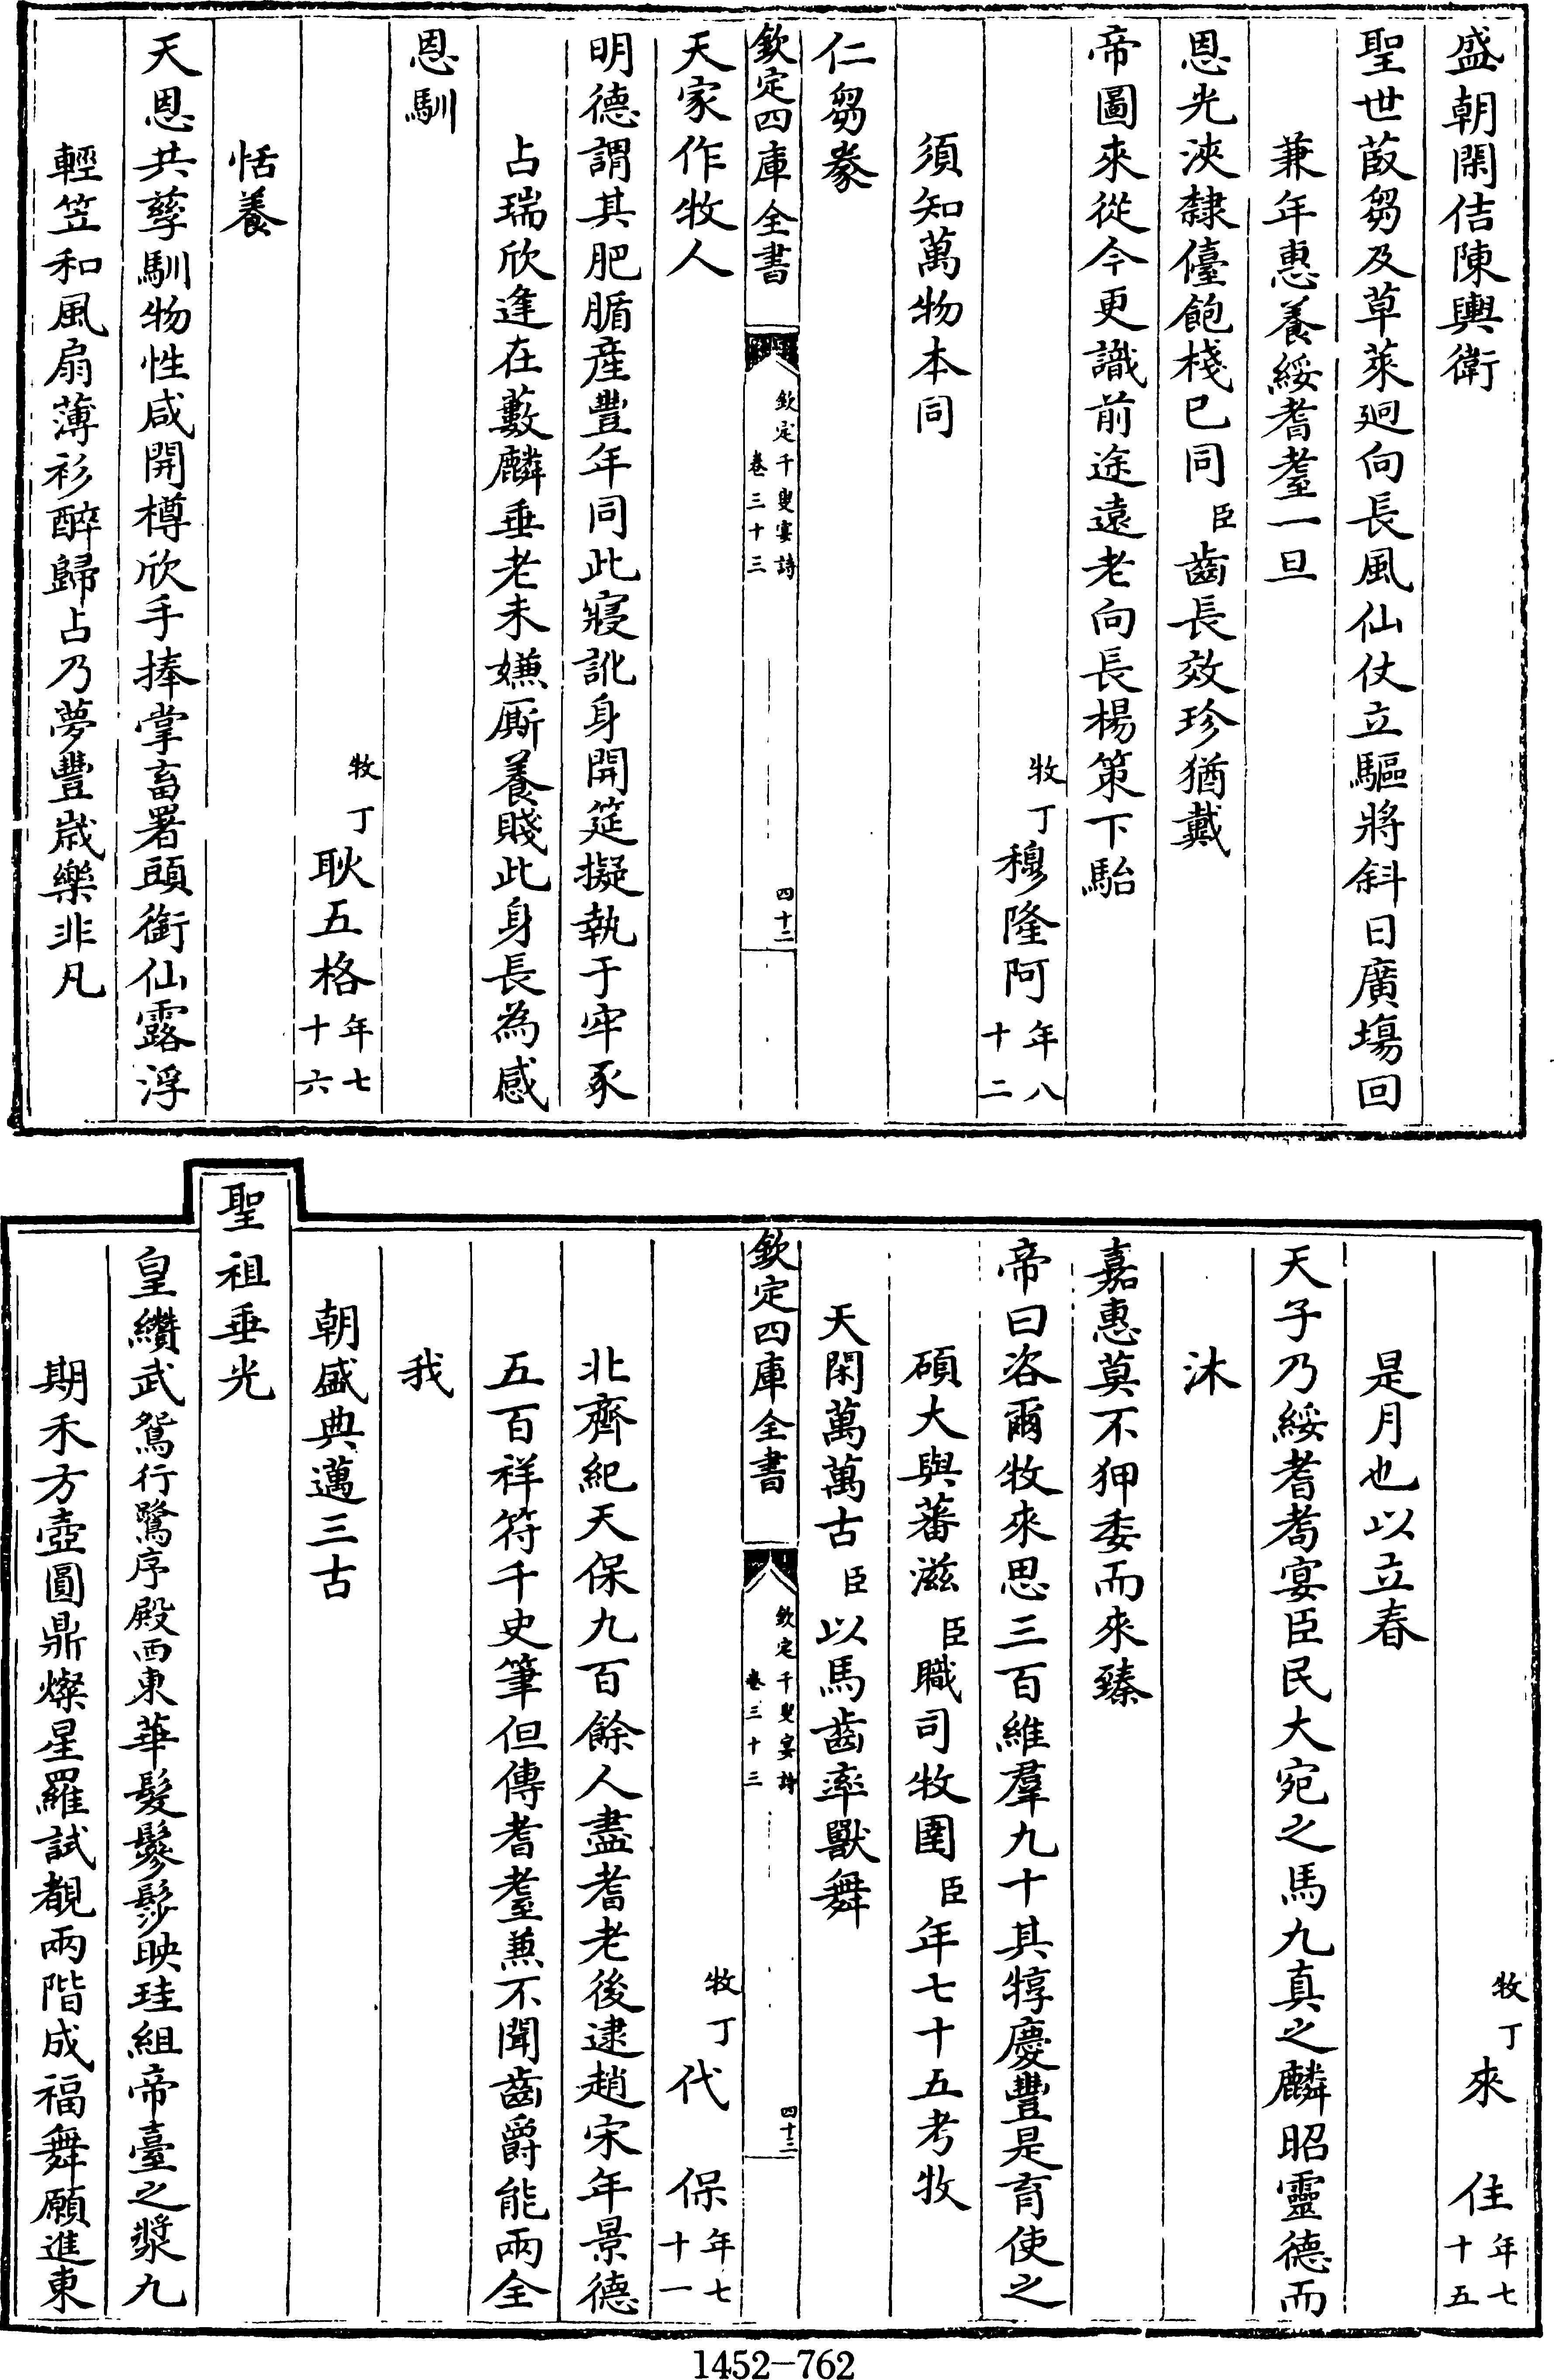 盛朝閑佶陳輿衛
聖世葭芻及草萊廻向長風仙仗立驅將斜日廣塲回
兼年惠養綏耆耋一旦
恩光浹隸儓飽棧已同臣齒長效珍猶戴
帝圖來從今更識前途遠老向長楊策下駘
牧丁穆隆阿年八十二
須知萬物本同
仁芻豢
欽定四庫全書
欽定千叟宴詩
卷三十三
四十二
天家作牧人
明德謂其肥腯産豐年同此寢訛身開筵擬執于牢豕
占瑞欣逢在藪麟垂老未嫌厮養賤此身長為感
恩馴
牧丁耿五格年七十六
恬養
天恩共孳馴物性咸開樽欣手捧掌畜署頭銜仙露浮
輕笠和風扇薄衫醉歸占乃夢豐歲樂非凡
牧丁來佳年七十五
是月也以立春
天子乃綏耆耇宴臣民大宛之馬九真之麟昭靈德而
沐
嘉惠莫不狎委而來臻
帝曰咨爾牧來思三百維羣九十其犉慶豐是育使之
碩大與蕃滋臣職司牧圉臣年七十五考牧
天閑萬萬古臣以馬齒率獸舞
欽定四庫全書
欽定千叟宴詩
卷三十三
四十三
牧丁代保年七十一
北齊紀天保九百餘人盡耆老後逮趙宋年景德
五百祥符千史筆但傳耆耋蒸不聞齒爵能兩全
我
朝盛典邁三古
聖祖垂光
皇纘武鴛行鷺序殿西東華髮鬖髿映珪組帝臺之漿九
期禾方壺圓鼎燦星羅試觀兩階成福舞願進東
1452-762